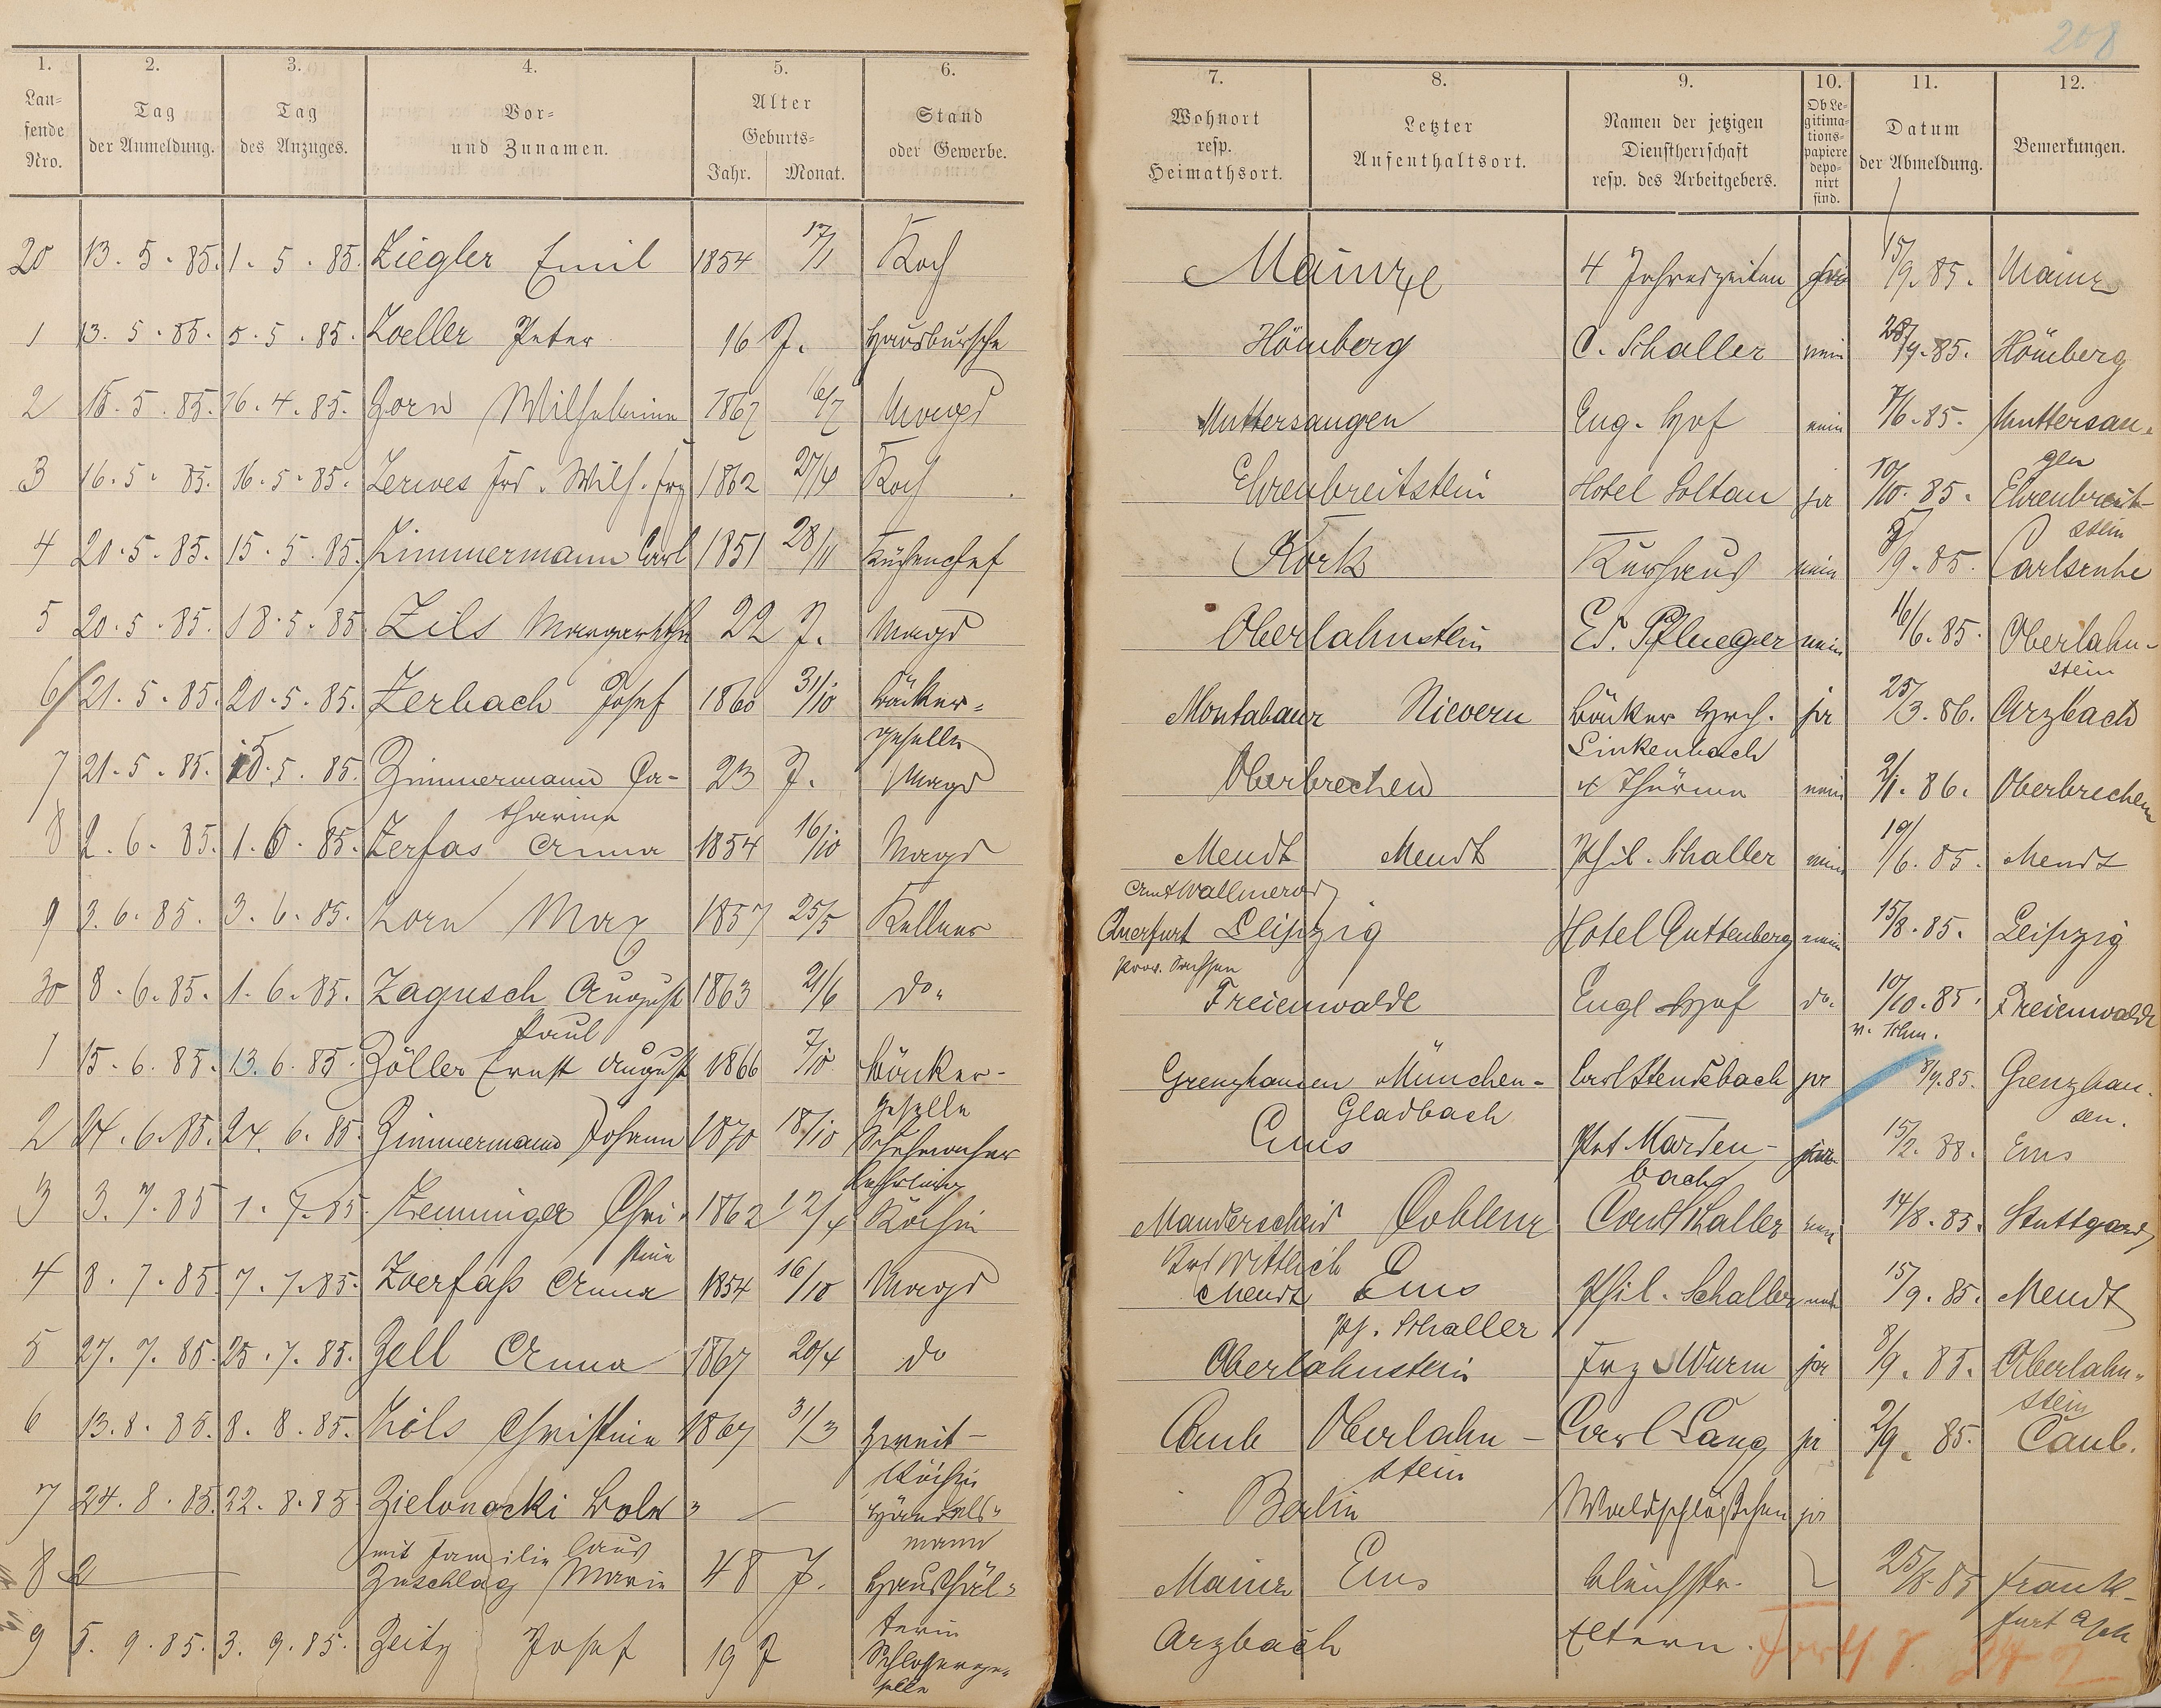 208
1. 2. 3. 4. 5. 6. 7. 8. 9. 10. 11. 12.
Laufende Nro. Tag der Anmeldung. Tag des Anzuges. Vor- und Zunamen. Alter Geburts- Jahr. Monat. Stand oder Gewerbe. Wohnort resp. Heimathsort. Letzter Aufenthaltsort. Namen der jetzigen Dienstherrschaft resp. des Arbeitgebers. Ob Legitimationspapiere deponirt sind. Datum der Abmeldung. Bemerkungen.
20 13. 5. 85. 1. 5. 85. Ziegler Emil 1854 17/1 Koch Mainz 4 Jahreszeiten 15/9. 85. Mainz
1 13. 5. 85. 5. 5. 85. Zoeller Peter 16 J. Hausbursche Hömberg C. Schaller nein 28/9. 85. Hömberg
2 15. 5. 85. 16. 4. 85. Zorn Wilhelmine 1867 16/7 Magd Muttersangen Eng. Hof nein 7/6. 85. Muttersan-
gen
3 16. 5. 85. 16. 5. 85. Zerwes Frd. Wilh. Frz 1862 27/4 Koch Ehrenbreitstein Hotel Soltau ja 10/10. 85. Ehrenbreit-
stein
4 20. 5. 85. 15. 5. 85. Zimmermann Carl 1851 28/11 Küchenchef Kork Kurhaus nein 9. 85. Carlsruhe
5 20. 5. 85. 18. 5. 85 Zils Margarethe 22 J. Magd Oberlahnstein Ed. Pflueger nein 16/6. 85. Oberlahn-
stein
6 21. 5. 85. 20. 5. 85. Zerbach Josef 1860 31/10 Bäcker- Montabaur Nievern Bäcker Hrch. ja 25/3. 86. Arzbach
geselle Linkenbach
7 21. 5. 85. 18. 5. 85. Zimmermann Ca- 23 J. Magd Oberbrechen 4 Thürme nein 2/1. 86. Oberbrechen
tharina
8 2. 6. 85. 1. 6. 85. Zerfas Anna 1854 16/10 Magd Mendt Mendt Phil. Schaller nein 19/6. 85. Mendt
Amt Wallmerod
9 3. 6. 85. 3. 6. 85. Zorn Max 1857 25/5 Kellner Querfurt Leipzig Hotel Guttenberg nein 15/8. 85. Leipzig
Prov. Sachsen
30 8. 6. 85. 1. 6. 85. Zagusch August 1863 21/6 do. Freienwalde Engl Hof do. 10/10. 85. Freienwalde
Paul
1 15. 6. 85. 13. 6. 85. Zöller Ernst August 1866 7/10 Bäcker- Grenzhausen München- Carl Hensebach ja 8/9. 85. Grenzhau-
geselle Gladbach sen.
2 24. 6. 85. 24. 6. 85. Zimmermann Johann 1870 18/10 Schuhmacher Ems Pet. Marden- 15/2. 88. Ems
Lehrling bach
3 3. 7. 85 1. 7. 85. Zemminger Chri- 1862 12/4 Köchin Manderscheid Coblenz Schaller nein 14/8. 85. Stuttgard
stine Wittlich
4 8. 7. 85 7. 7. 85. Zoerfaß Anna 1854 16/10 Magd Mendt Ems Phil. Schaller nein 15/9. 85. Mendt
Ph. Schaller
5 27. 7. 85. 25. 7. 85. Zell Anna 1867 20/4 do Oberlahnstein Frz Wurm ja 8/9. 85. Oberlahn-
stein
6 13. 8. 85. 8. 8. 85. Zils Christine 1867 31/3 Zweit- Caub Oberlahn- Carl Lang ja 2/9. 85. Caub.
köchin stein
7 24. 8. 85. 22. 8. 85 Zielonacki Boles- Handels- Berlin Waldschlößchen ja
mit Familie laus mann
8 Zuschlag Marie 48 J. Haushäl- Mainz Ems Bleichstr. 25/8. 85 Frank-
terin furt a/M
9 5. 9. 85. 3. 9. 85. Zeitz Josef 19 J Schlosserge- Arzbach Eltern.
selle